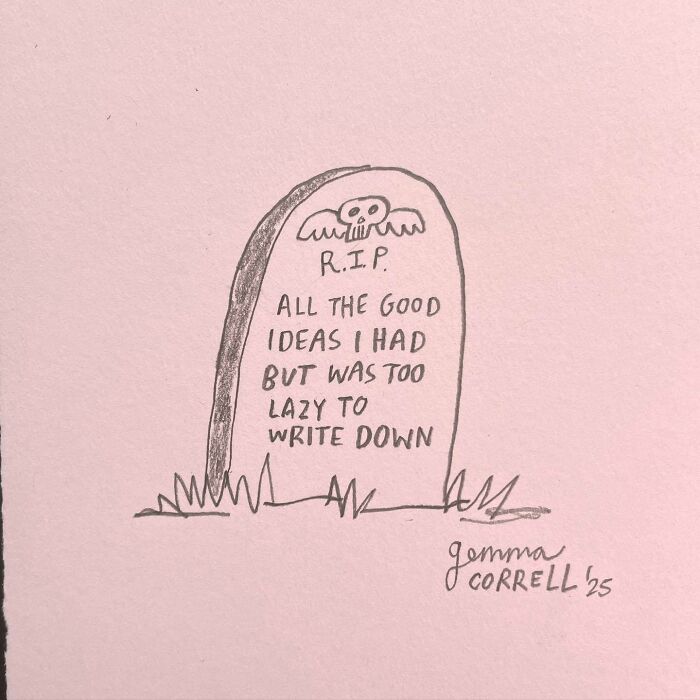 R.I.P.
ALL THE GOOD
IDEAS I HAD
BUT WAS TOO
LAZY TO
WRITE DOWN
gemma
CORRELL '25